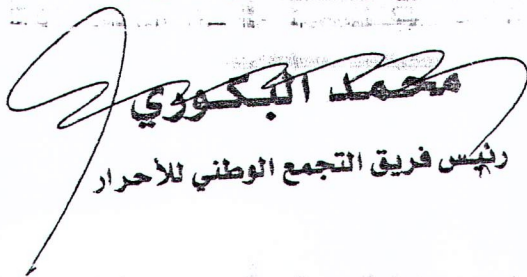 محمد البكوري
رئيس فريق التجمع الوطني للأحرار